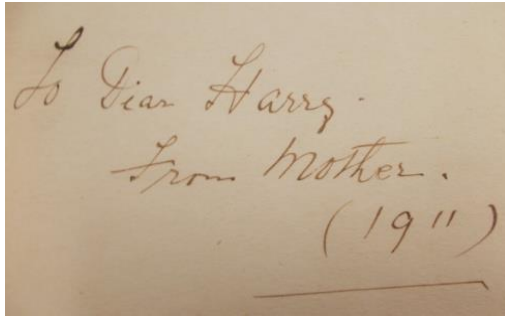 To Dear Harry.
From Mother.
(1911)